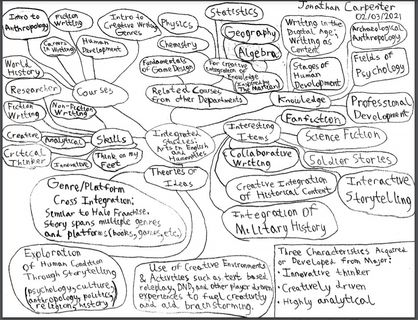 Jonathan Carpenter
02/03/2021
Intro to
Anthropology
Fiction
Writing
Careers
in Writing
Human
Development
Intro to
Creative Writing
Genres
Physics
Chemistry
Fundamentals
of Game Design
Statistics
Geography
Algebra
For Creative
Integration of
Knowledge
(Inspired by
The Martian)
Related Courses
from other Departments
Writing in the
Digital Age;
Writing as
Content
Archaeological
Anthropology
Stages of
Human
Development
Fields of
Psychology
Knowledge
Professional
Development
World
History
Researcher
Courses
Fiction
Writing
Non-Fiction
Writing
Creative
Analytical
Skills
Critical
Thinker
Innovative
Think on my
Feet
Integrated
Studies:
Arts in English
and
Humanities
Interesting
Items
Fanfiction
Science Fiction
Collaborative
Writing
Soldier Stories
Creative Integration
of Historical Context
Interactive
Storytelling
Integration Of
Military History
Theories of
Ideas
Genre/Platform
Cross Integration:
Similar to Halo Franchise.
Story spans multiple genres
and platforms (books, games, etc.)
Exploration
of Human Condition
Through Storytelling
(psychology, culture,
anthropology, politics,
religion, history)
Use of Creative Environments
& Activities such as text based
roleplay, DND, and other player driven
experiences to fuel creativity
and aid brainstorming.
Three Characteristics Acquired
or Developed from Major:
• Innovative thinker
• Creatively driven
• Highly analytical